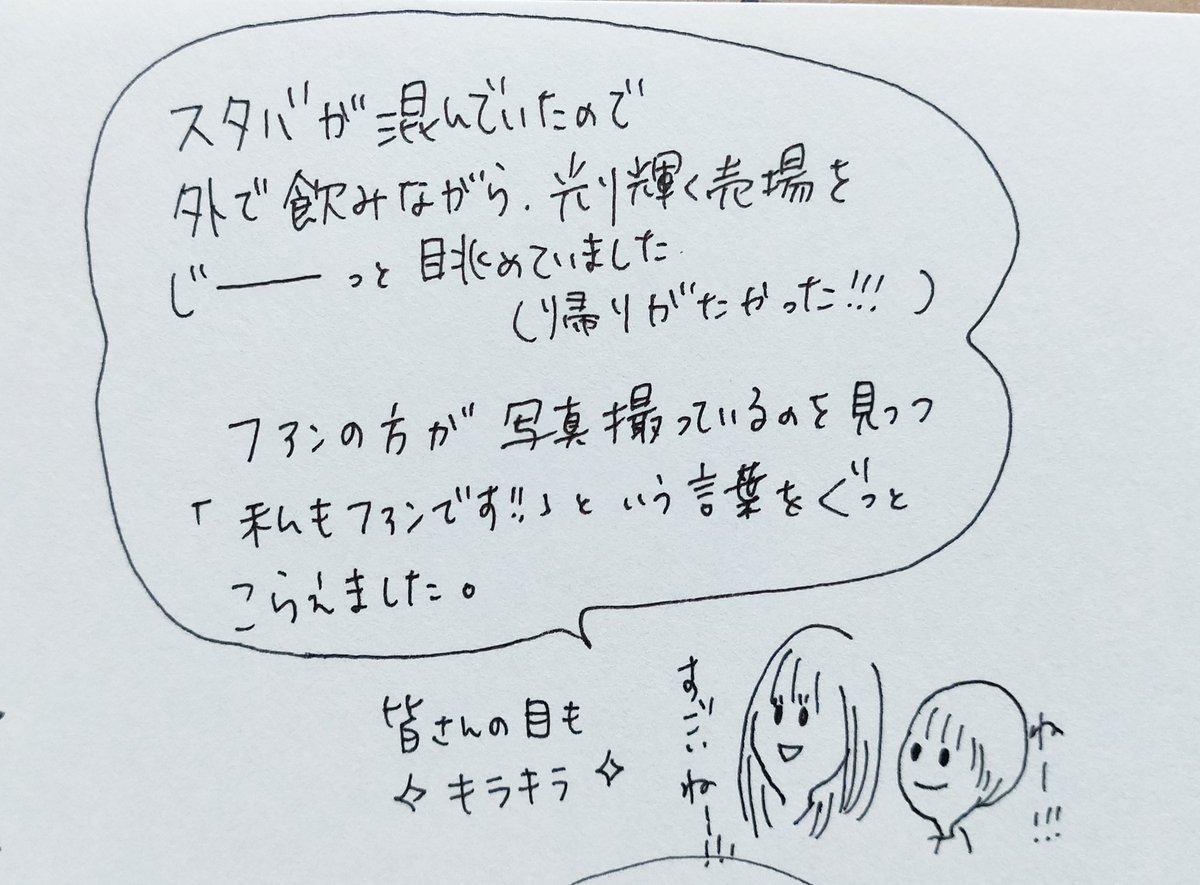 スタバが混んでいたので
外で飲みながら、光り輝く売場を
じーーっと眺めていました
(帰りがたかった!!!)
ファンの方が写真撮っているのを見つつ
「私もファンです!!」という言葉をぐっと
こらえました。
皆さんの目も
キラキラ
すごいねー!!!
ねー!!!